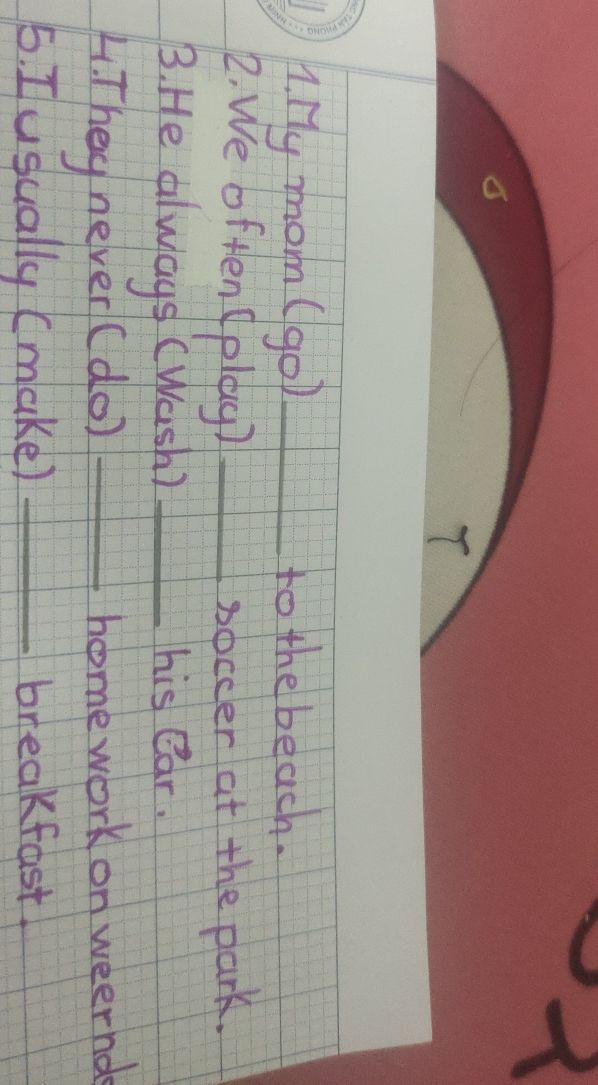 1. My mom (go) ____ to the beach.
2. We often (play) ____ soccer at the park.
3. He always (Wash) ____ his Car.
4. They never (do) ____ home work on weernds
5. I usually (make) ____ breakfast.